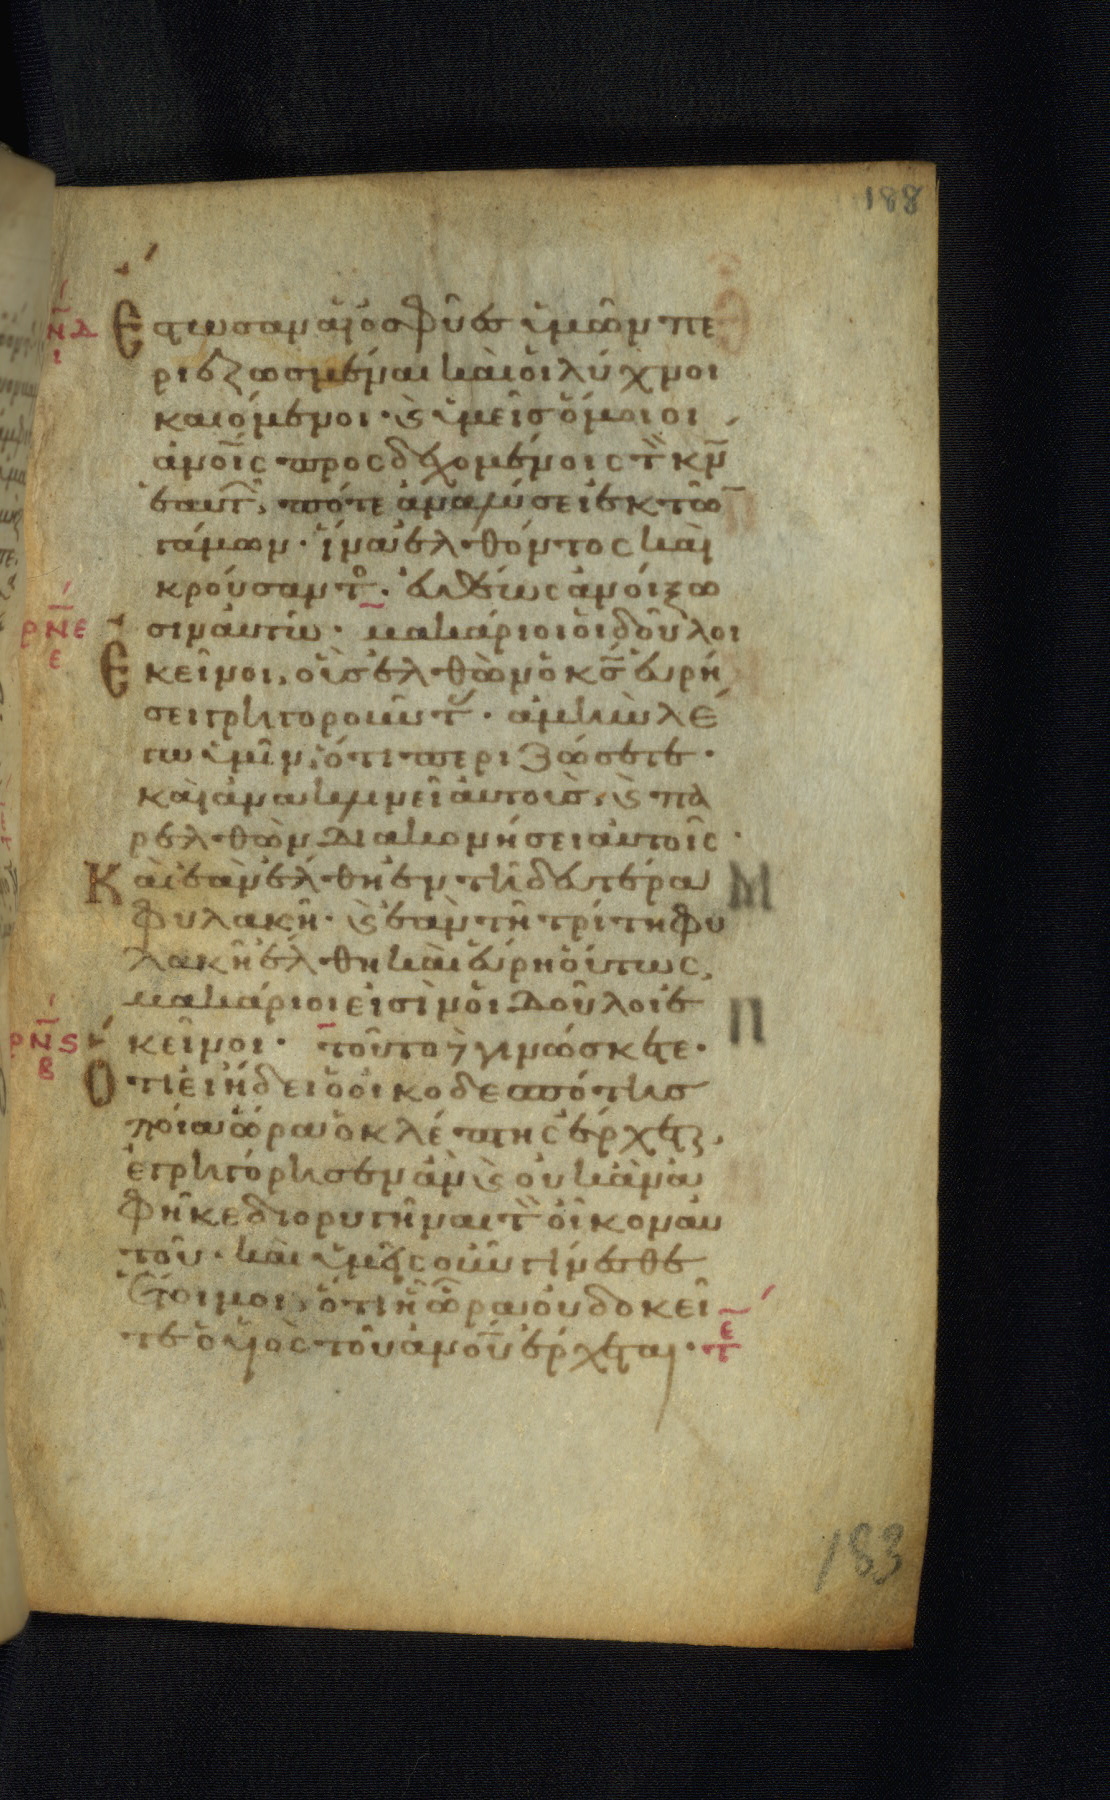 188
Ἔστωσαν αἱ ὀσφύες ὑμῶν πε
ριεζωσμέναι καὶ οἱ λύχνοι
καιόμενοι· κ̀ ὑμεῖς ὅμοιοι
ἀνο̅ι̅ς προσδεχομένοις τ̀ κ̅ν̅
ἑαυτῶν, πότε ἀναλύσει ἐκ τῶ
γάμων· ἵνα ἐλθόντος καὶ
κρούσαντο· εὐθέως ἀνοίξω
σιν αὐτῶ· μακάριοι οἱ δοῦλοι
Ἐκεῖνοι, οὓς ἐλθὼν ὁ κ̅ς̅ εὑρή
σει γρηγοροῦντ· ἀμὴν λέ
γω ὑμῖν, ὅτι περιζώσεται·
καὶ ἀνακλινεῖ αὐτοὺς, κ̀ πα
ρελθὼν διακονήσει αὐτοῖς·
Καὶ ἐὰν ἔλθη ἐν τῆ δευτέρα
φυλακῆ· κ̀ ἐὰν τῆ τρίτη φυ
λακῆ ἔλθη καὶ εὕρη οὕτως,
μακάριοι εἰσὶν οἱ δοῦλοι ἐ
κεῖνοι· τοῦτο δὲ γινώσκετε·
Ὅτι εἰ ἤδει ὁ οἰκοδεσπότης
ποία ὥρα ὁ κλέπτης ἔρχεται,
ἐγρηγόρησεν ἂν κ̀ οὐκ ἂν ἀ
φῆκε διορυγῆναι τ̀ οἶκον αὐ
τοῦ· καὶ ὑμεῖς οὖν γίνεσθε
ἕτοιμοι, ὅτι ἧ ὥρα οὐ δοκεῖ
τε ὁ υἱὸς τοῦ ἀνο̅υ̅ ἔρχεται· τε
ρνε
ε
ρνς
β
183